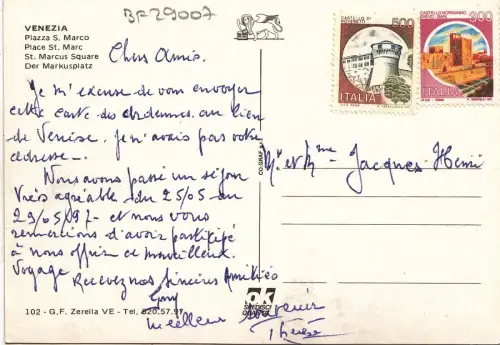 BF29007
VENEZIA
Piazza S. Marco
Place St. Marc
St. Marcus Square
Der Markusplatz
Chers Amis.
Je m'excuse de vous envoyer
cette carte des Ardennes au lieu
de Venise. Je n'avais pas votre
adresse -.
Nous avons passé un séjour
très agréable du 25/05 au
29/05/97 - et nous vous
remercions d'avoir participé
à nous offrir ce merveilleux
Voyage Recevez nos sincères Amitiés
Meilleur souvenir
Thérèse
CASTELLO DI
ROVERETO
500
ITALIA
CASTELLO NORMANNO
SVEVO - BARI
900
ITALIA
Mr et Mme Jacques Henri
102 - G.F. Zerella VE - Tel. 520.57.97